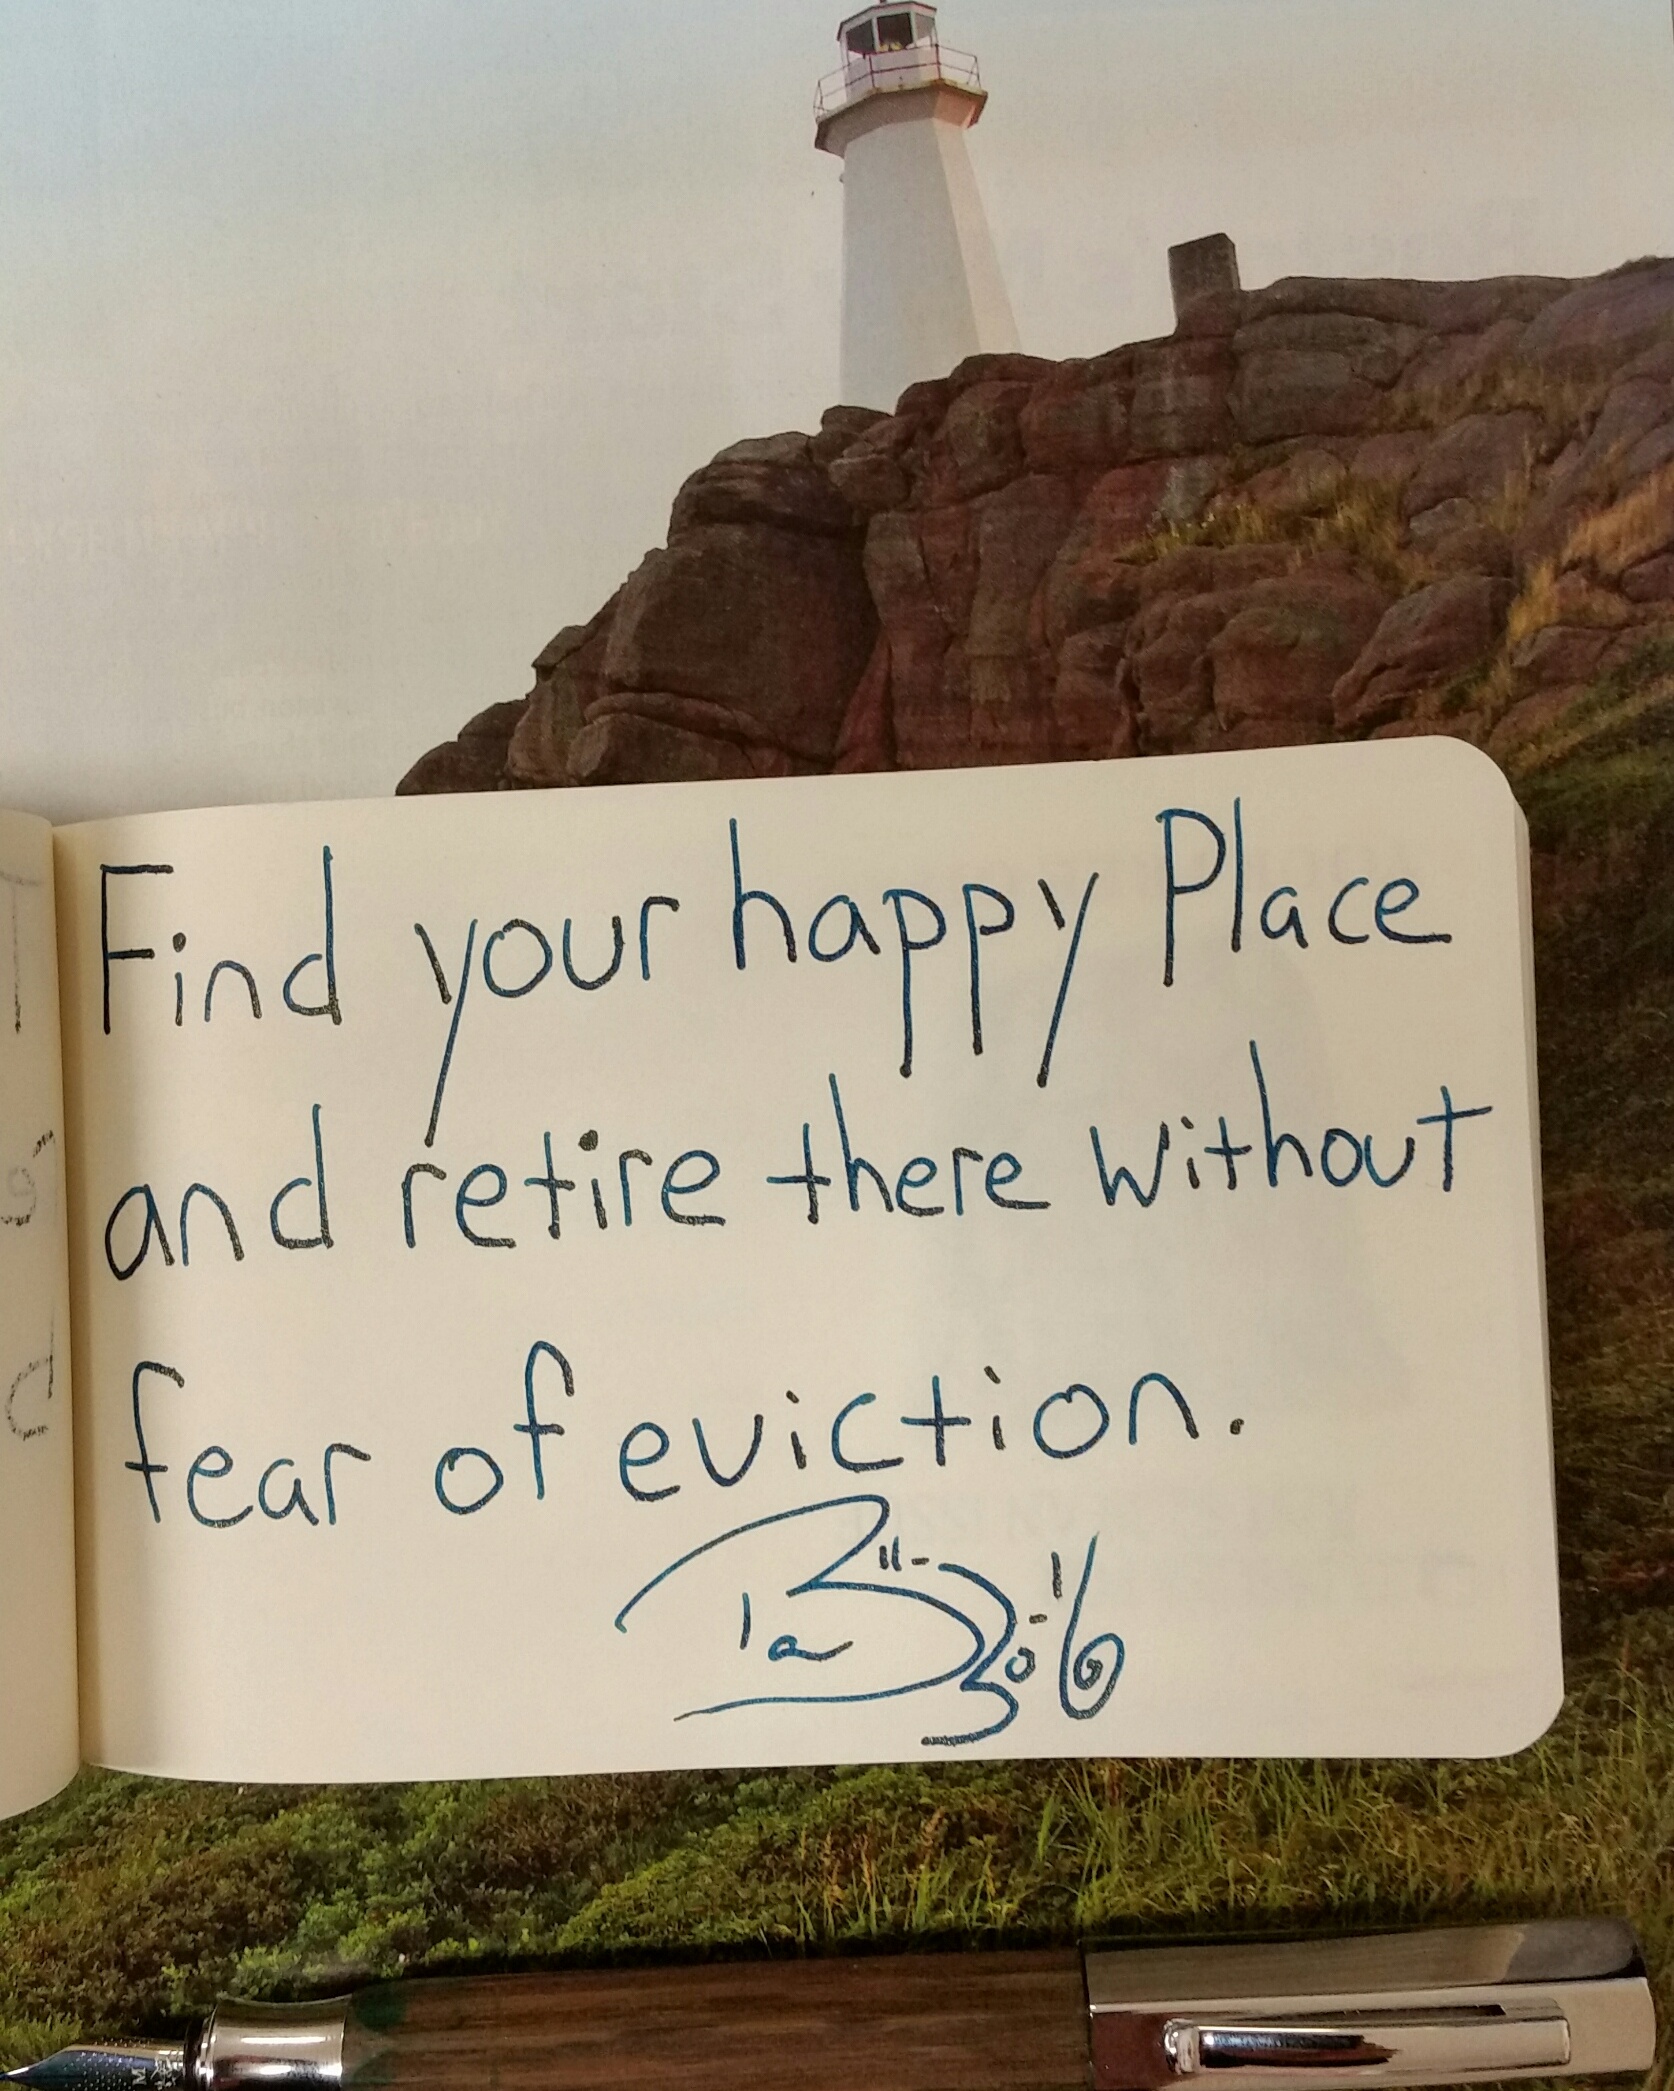 Find your happy Place
and retire there without
fear of eviction.
M